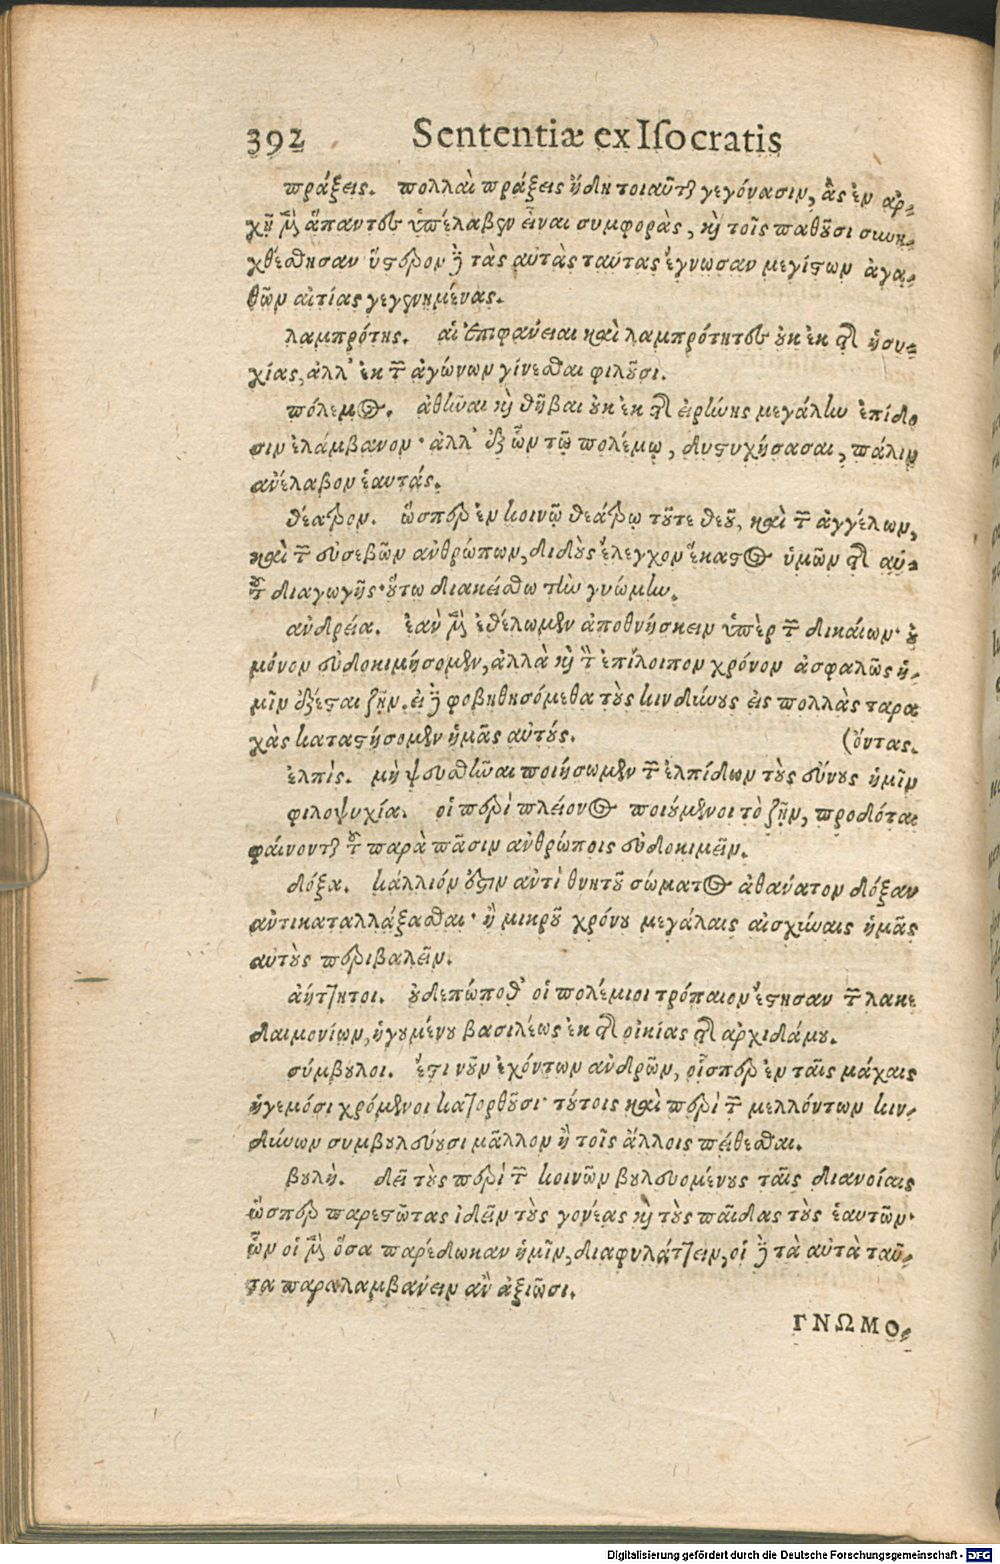 392 Sententiæ ex Isocratis
πράξεις. πολλαὶ πράξεις ἤδη τοιαῦται γεγόνασιν, ἃς ἐν ἀρ-
χῇ μὲν ἅπαντες ὑπέλαβον εἶναι συμφορὰς, καὶ τοῖς παθοῦσι συνη-
χθέσθησαν ὕστερον δὲ τὰς αὐτὰς ταύτας ἔγνωσαν μεγίστων ἀγα-
θῶν αἰτίας γεγενημένας.
λαμπρότης. αἱ ἐπιφάνειαι καὶ λαμπρότητες οὐκ ἐκ τῆς ἡσυ-
χίας, ἀλλ' ἐκ τῶν ἀγώνων γίνεσθαι φιλοῦσι.
πόλεμος. ἀθῆναι καὶ θῆβαι οὐκ ἐκ τῆς εἰρήνης μεγάλην ἐπίδο
σιν ἐλάμβανον· ἀλλ' ἐξ ὧν τῷ πολέμῳ, δυςυχήσασαι, πάλιν
ἀνέλαβον ἑαυτάς.
θέατρον. ὥσπερ ἐν κοινῷ θεάτρῳ τοῦτε θεοῦ, καὶ τῶν ἀγγέλων,
καὶ τῶν εὐσεβῶν ἀνθρώπων, διδοὺς ἔλεγχον ἕκαστος ὑμῶν τῆς αὐ-
τοῦ διαγωγῆς· οὕτω διακείσθω τὴν γνώμην.
ἀνδρεία. ἐὰν μὲν ἐθέλωμεν ἀποθνήσκειν ὑπὲρ τῶν δικαίων· οὐ
μόνον εὐδοκιμήσομεν, ἀλλὰ καὶ τὸν ἐπίλοιπον χρόνον ἀσφαλῶς ἡ-
μῖν ἐξέσται ζῆν. εἰ δὲ φοβηθησόμεθα τοὺς κινδύνους εἰς πολλὰς ταρα
χὰς καταστήσομεν ἡμᾶς αὐτούς. (ὄντας.
ἐλπίς. μὴ ψευσθῆναι ποιήσωμεν τῶν ἐλπίδων τοὺς εὔνους ἡμῖν
φιλοψυχία. οἱ περὶ πλείονος ποιούμενοι τὸ ζῆν, προδόται
φαίνονται τοῦ παρὰ πᾶσιν ἀνθρώποις εὐδοκιμεῖν.
δόξα. κάλλιόν ἐστιν ἀντὶ θνητοῦ σώματος ἀθάνατον δόξαν
ἀντικαταλλάξασθαι· ἢ μικροῦ χρόνου μεγάλαις αἰσχύναις ἡμᾶς
αὐτοὺς περιβαλεῖν.
ἀήττητοι. οὐδεπώποθ' οἱ πολέμιοι τρόπαιον ἔστησαν τῶν λακε
δαιμονίων, ἡγουμένου βασιλέως ἐκ τῆς οἰκίας τῆς ἀρχιδάμου.
σύμβουλοι. ἔστι νοῦν ἐχόντων ἀνδρῶν, οἷσπερ ἐν ταῖς μάχαις
ἡγεμόσι χρόμενοι κατορθοῦσι· τούτοις καὶ περὶ τῶν μελλόντων κιν-
δύνων συμβουλεύουσι μᾶλλον ἢ τοῖς ἄλλοις πείθεσθαι.
βουλή. δεῖ τοὺς περὶ τῶν κοινῶν βουλευομένους ταῖς διανοίαις
ὥσπερ παρεστῶτας ἰδεῖν τοὺς γονέας καὶ τοὺς παῖδας τοὺς ἑαυτῶν·
ὧν οἱ μὲν ὅσα παρέδωκαν ἡμῖν, διαφυλάττειν, οἱ δὲ τὰ αὐτὰ ταῦ-
τα παραλαμβάνειν ἂν ἀξιῶσι.
ΓΝΩΜΟ-
Digitalisierung gefördert durch die Deutsche Forschungsgemeinschaft - DFG